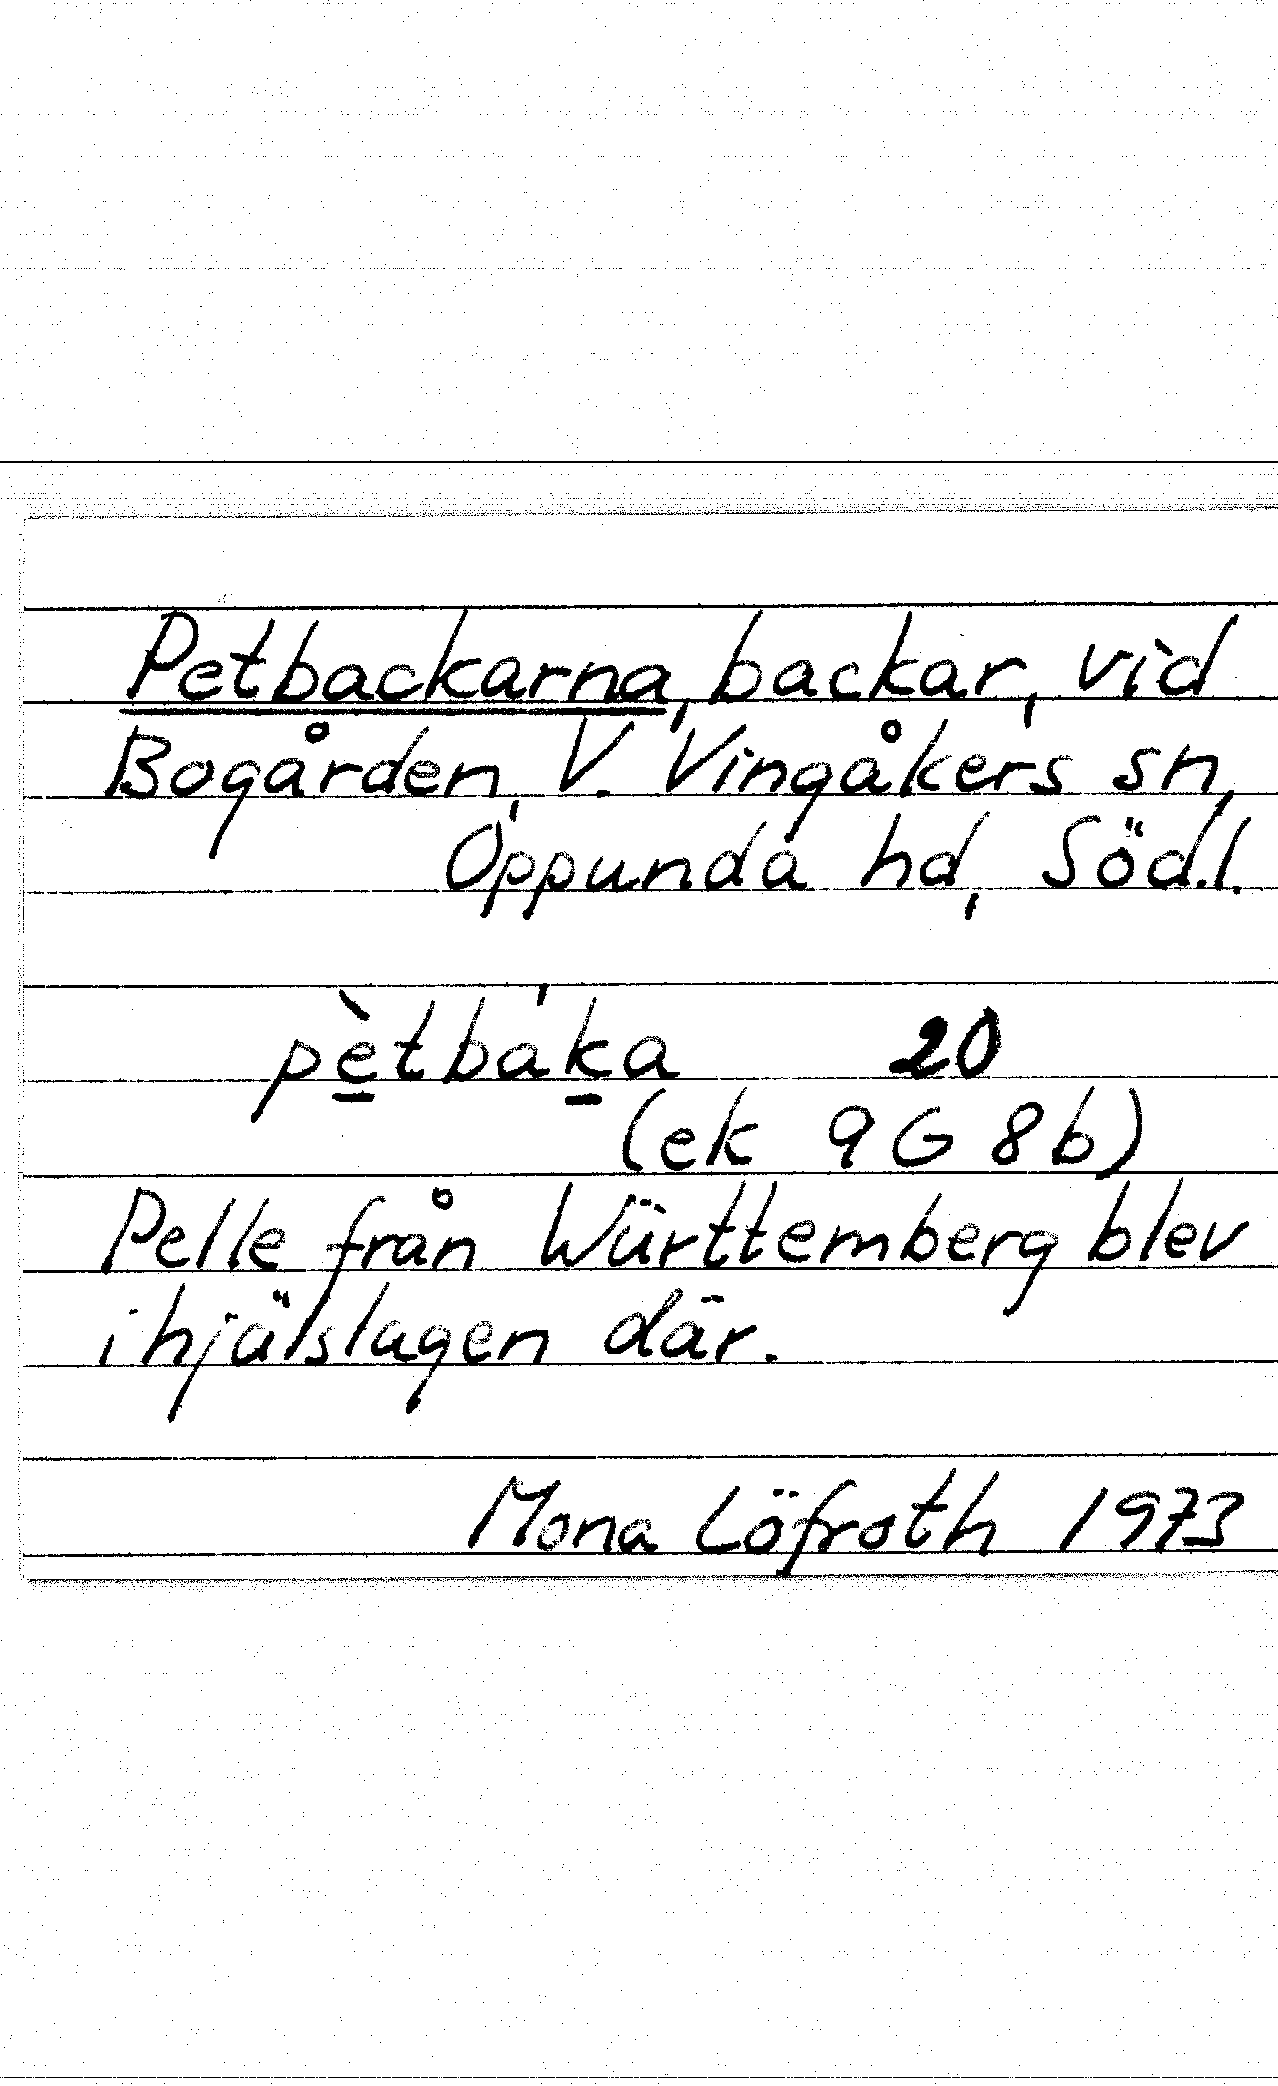 Petbackarna, backar, vid
Bogården, V. Vingåkers sn,
Oppunda hd, Södl.
pè̱tbáḵa 20
(ek 9G 8b)
Pelle från Württemberg blev
ihjälslagen där.
Mona Löfroth 1973